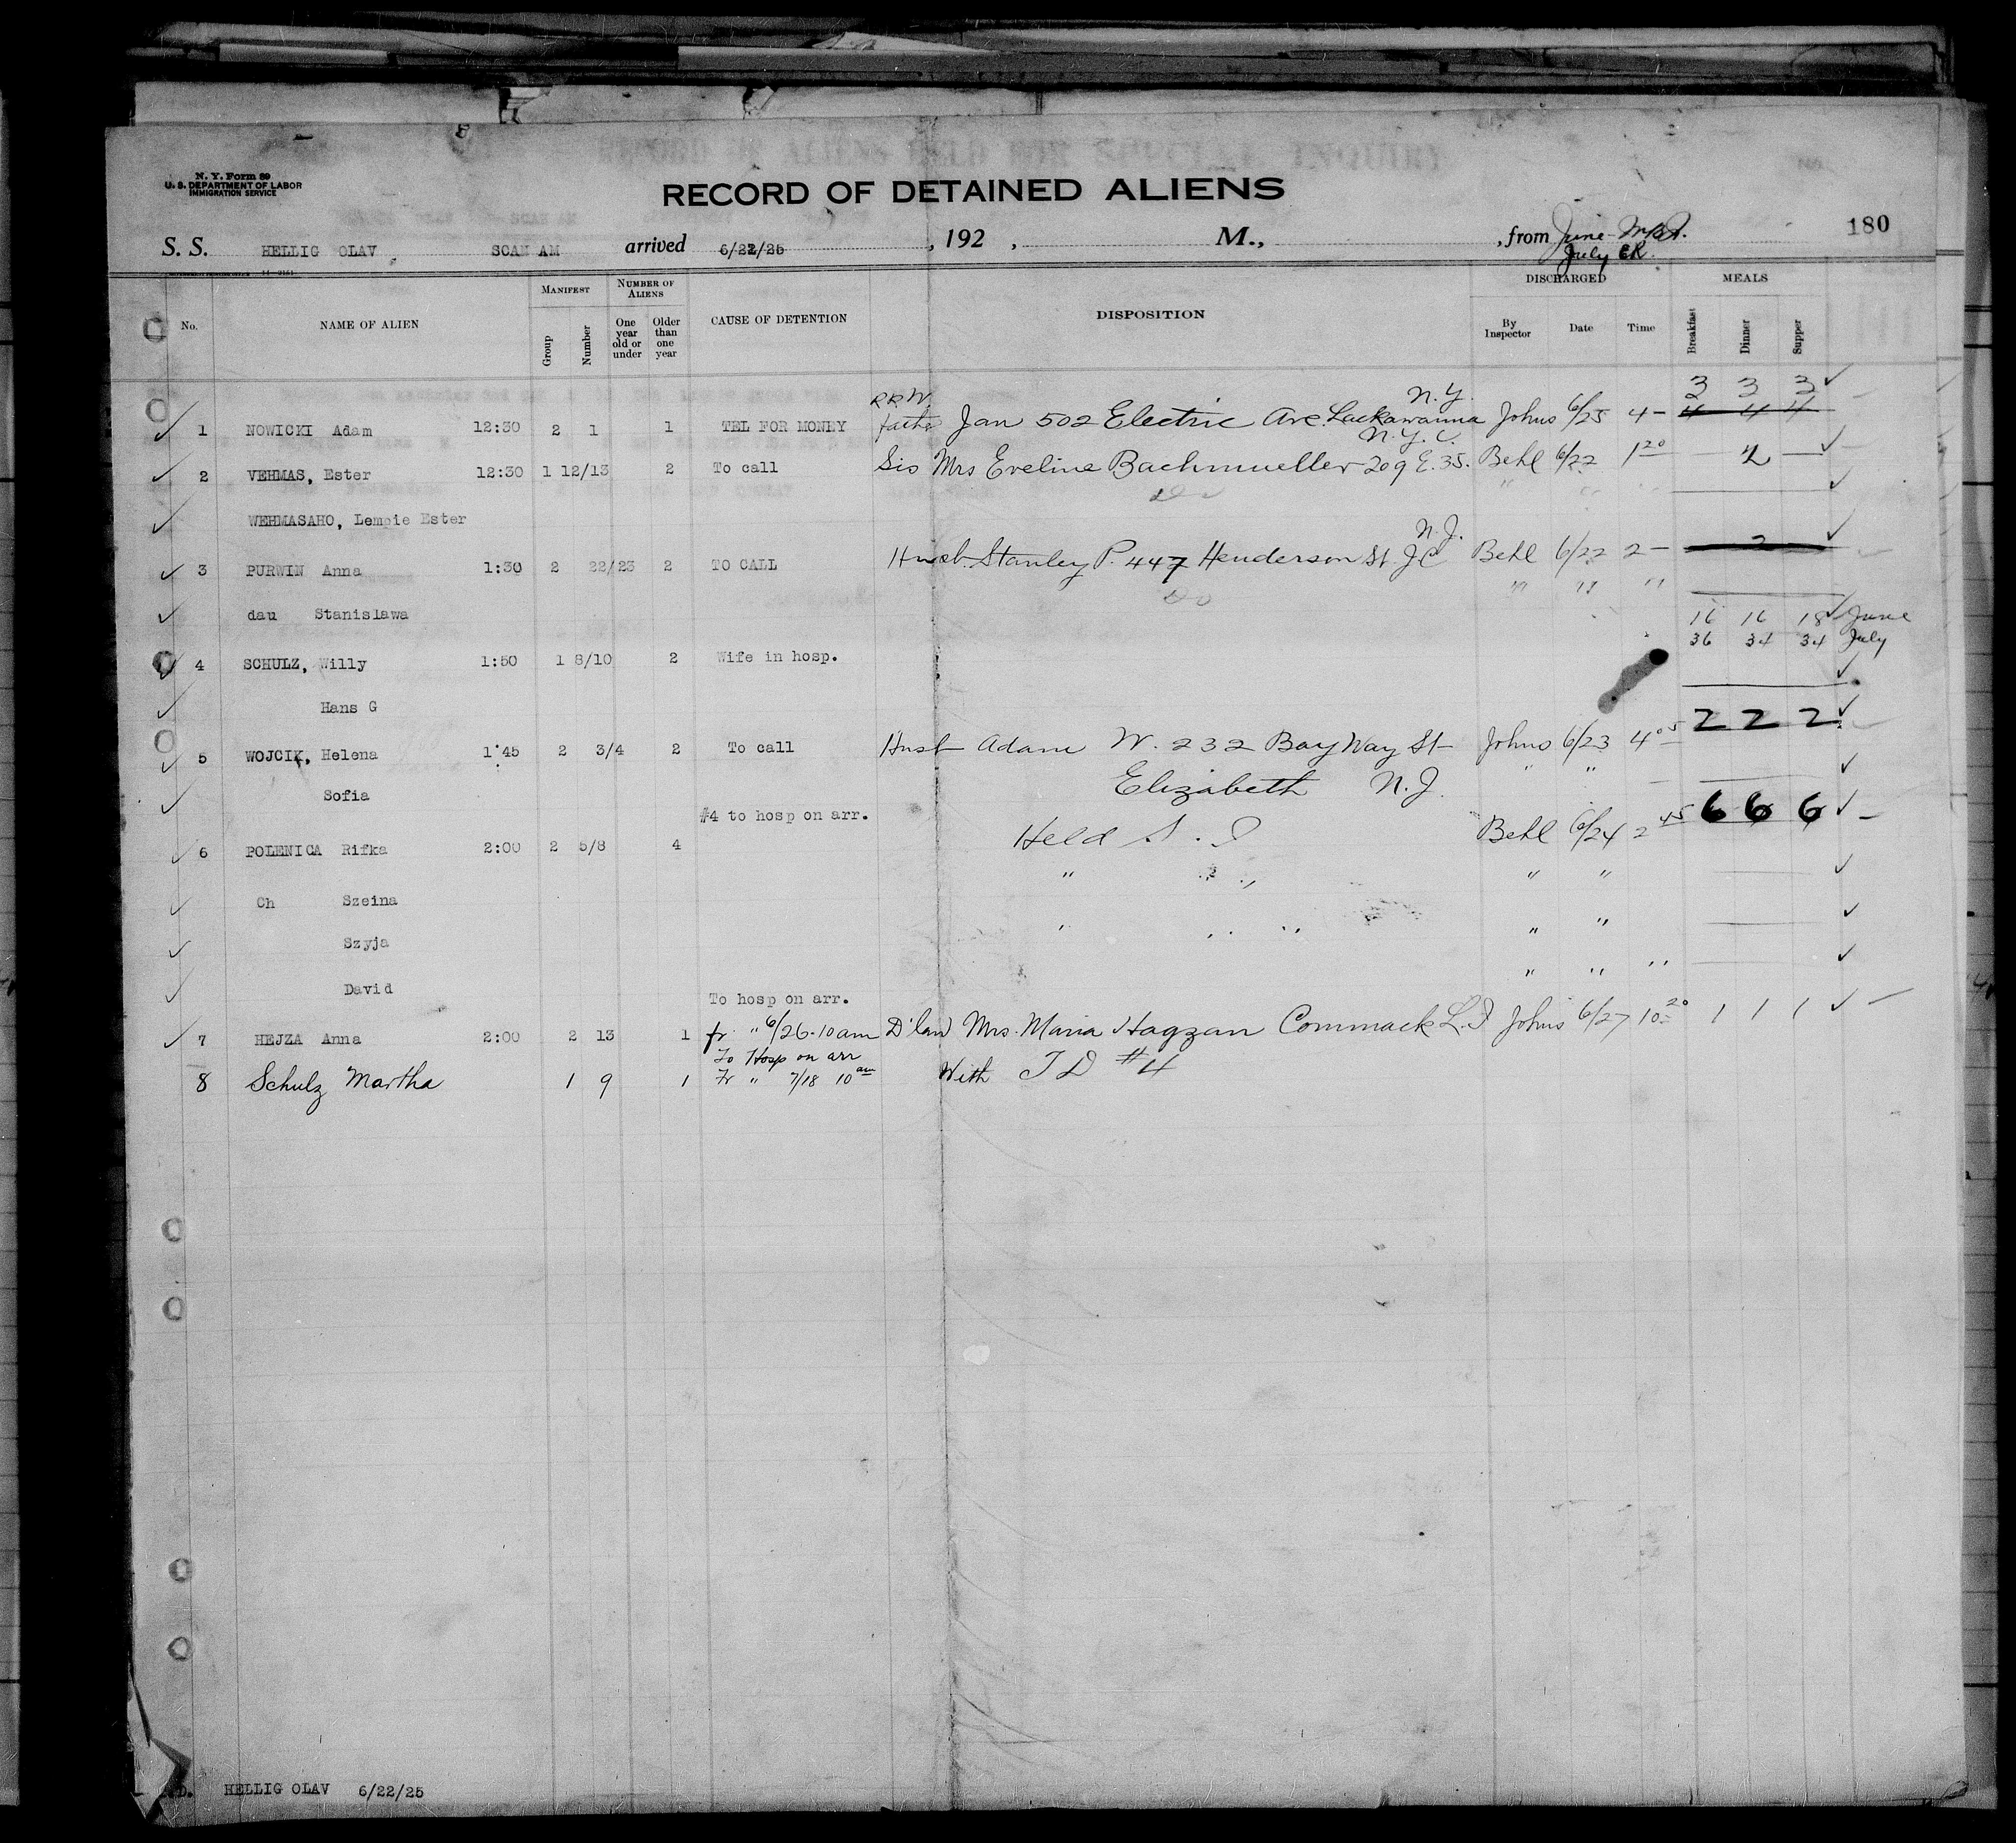 N. Y. Form 89
U. S. DEPARTMENT OF LABOR
IMMIGRATION SERVICE
RECORD OF DETAINED ALIENS
180
S. S. HELLIG OLAV, SCAN AM arrived 6/22/25, 192 , M., , from June
July CR.
No. NAME OF ALIEN MANIFEST Group Number NUMBER OF ALIENS One year old or under Older than one year CAUSE OF DETENTION DISPOSITION DISCHARGED By Inspector Date Time MEALS Breakfast Dinner Supper
RRW. N.Y. 3 3 3
1 NOWICKI Adam 12:30 2 1 1 TEL FOR MONEY father Jan 502 Electric Ave. Lackawanna Johns 6/25 4- 4 4 4
N.Y.C.
2 VEHMAS, Ester 12:30 1 12/13 2 To call Sis Mrs Eveline Bachmueller 209 E. 35. Behl 6/22 1 20 2
WEHMASAHO, Lempie Ester do " " "
N.J.
3 PURWIN Anna 1:30 2 22/23 2 TO CALL Husb. Stanley P. 447 Henderson St. J C Behl 6/22 2- 2
dau Stanislawa do " " "
16 16 18 June
36 34 34 July
4 SCHULZ, Willy 1:50 1 8/10 2 Wife in hosp.
Hans G
5 WOJCIK, Helena 1:45 2 3/4 2 To call Husb Adam W. 232 Bay Way St Johns 6/23 4 05 2 2 2
Sofia Elizabeth N.J. " "
#4 to hosp on arr.
6 POLENICA Rifka 2:00 2 5/8 4 Held S. I Behl 6/24 2 45 6 6 6
Ch Szeina " " " " "
Szyja " " " " "
David " " "
To hosp on arr.
7 HEJZA Anna 2:00 2 13 1 fr " 6/26-10am D'law Mrs. Maria Hagzan Commack L.I Johns 6/27 10 20 1 1 1
To Hosp on arr
8 Schulz Martha 1 9 1 Fr " 7/18 10 am With T D #4
D. HELLIG OLAV 6/22/25